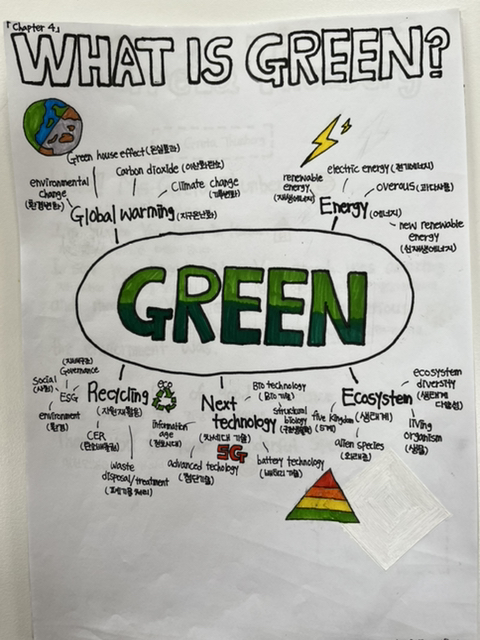 「Chapter 4」
WHAT IS GREEN?
Green house effect (온실효과)
Carbon dioxide (이산화탄소)
environmental
change
(환경변화)
Climate change
(기후변화)
Global warming (지구온난화)
electric energy (전기에너지)
renewable
energy
(재생에너지)
Energy (에너지)
new renewable
energy
(신재생에너지)
GREEN
Governance
Social
(사회)
ESG
environment
(환경)
Recycling
(자원재활용)
eco
CER
(탄소배출권)
waste
disposal/treatment
Next
technology
(차세대 기술)
5G
information
age
(정보시대)
advanced techology
(첨단기술)
Bio technology
(Bio 기술)
structural
biology
battery technology
(배터리 기술)
Ecosystem
(생태계)
ecosystem
diversity
(생태계
다양성)
five kingdom
(5계)
alien species
(외래종)
living
organism
(생물)